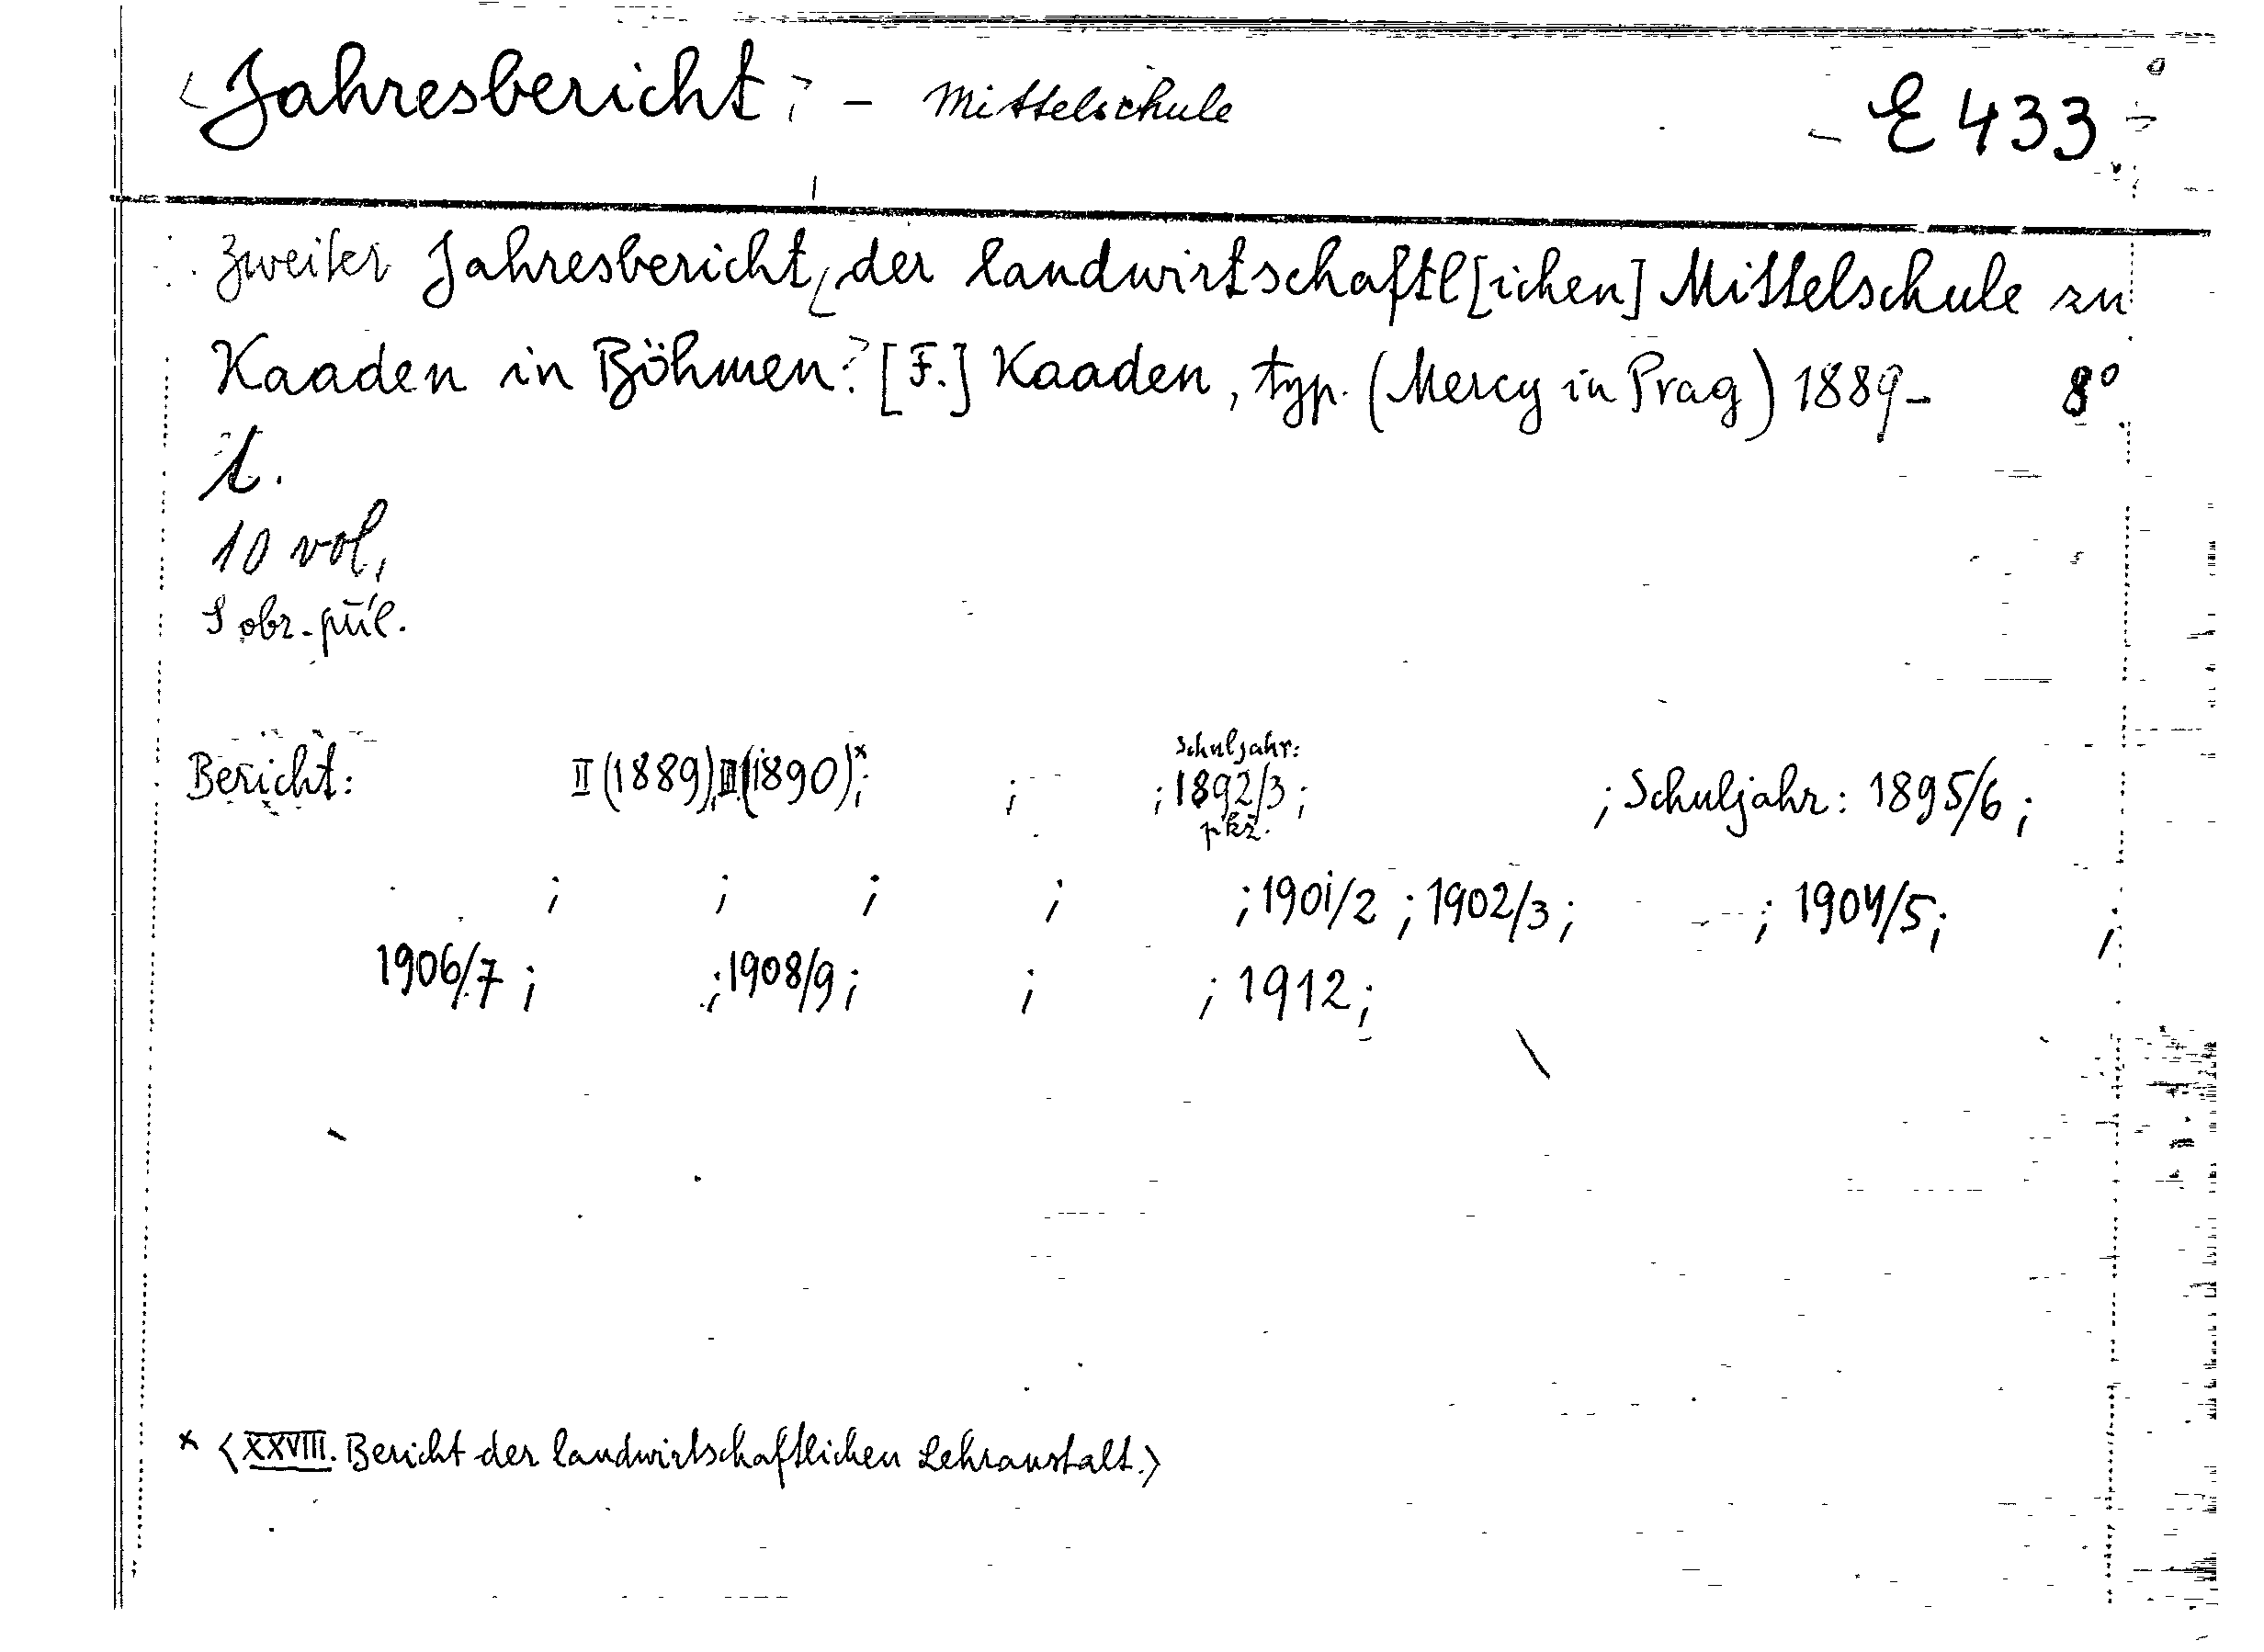 <Jahresbericht> - Mittelschule E 433
Zweiter Jahresbericht < der landwirtschaftl[ichen] Mittelschule zu
Kaaden in Böhmen > [F.] Kaaden, typ. (Mercy in Prag) 1889- 8°
t.
10 vol.
S obr. příl.
Schuljahr:
Bericht: II (1889), III (1890)*; ; ; 1892/3; ; Schuljahr: 1895/6;
; ; ; ; ; 1901/2; 1902/3; ; 1904/5; ;
1906/7; ; 1908/9; ; ; 1912;
× <XXVIII. Bericht der landwirtschaftlichen Lehranstalt.>